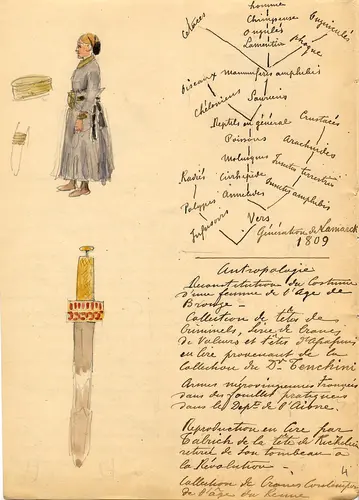 homme
Cétacés
Chimpanse
Onguiculés
Ongulés
Lamentin
Phoque
Oiseaux
Mammifères amphibés
Chéloniens
Sauriens
Reptils en général
Crustacés
Poissons
Arachnides
Molusques
Insectes terrestres
Radiés
Cirrhipède
Insectes amphibés
Polypes
Annelides
Infusoirs
Vers
Génération de Lamarck
1809
Antropologie
Reconstitution du Costume
d'une femme de l'Age de
Bronze -
Collection de têtes de
Criminels, série de Cranes
de Voleurs et têtes d'
en cire provenant de la
Collection du Dr Tenchini
Armes mérovingiennes français
dans des fouilles pratiquées
dans le Dept de l'Aisne.
Reproduction en cire par
Talrich de la tête de Richelieu
retiré de son tombeau à
la Révolution -
Collection de Cranes
de l'âge du Renne
4